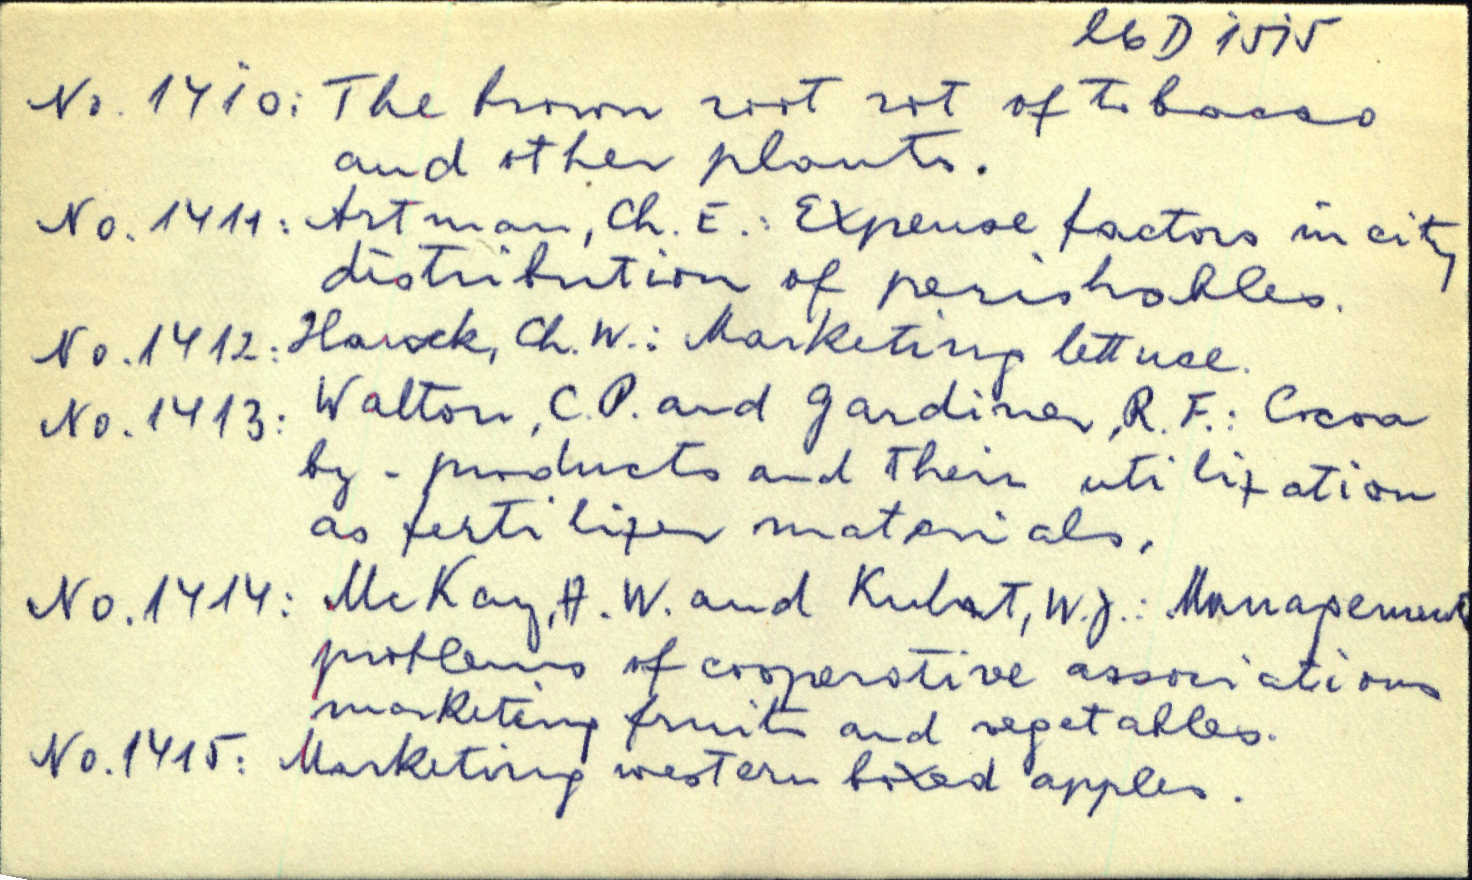 26 D 1515
No. 1410: The brown root rot of tobacco
and other plants.
No. 1411: Artman, Ch. E.: Expense factors in city
distribution of perishables.
No. 1412: Hauck, Ch. W.: Marketing lettuce.
No. 1413: Walton, C.P. and Gardiner, R. F.: Cocoa
by-products and their utilization
as fertilizer materials.
No. 1414: McKay, A. W. and Kuhrt, W.J.: Management
problems of cooperative associations
marketing fruits and vegetables.
No. 1415: Marketing western boxed apples.